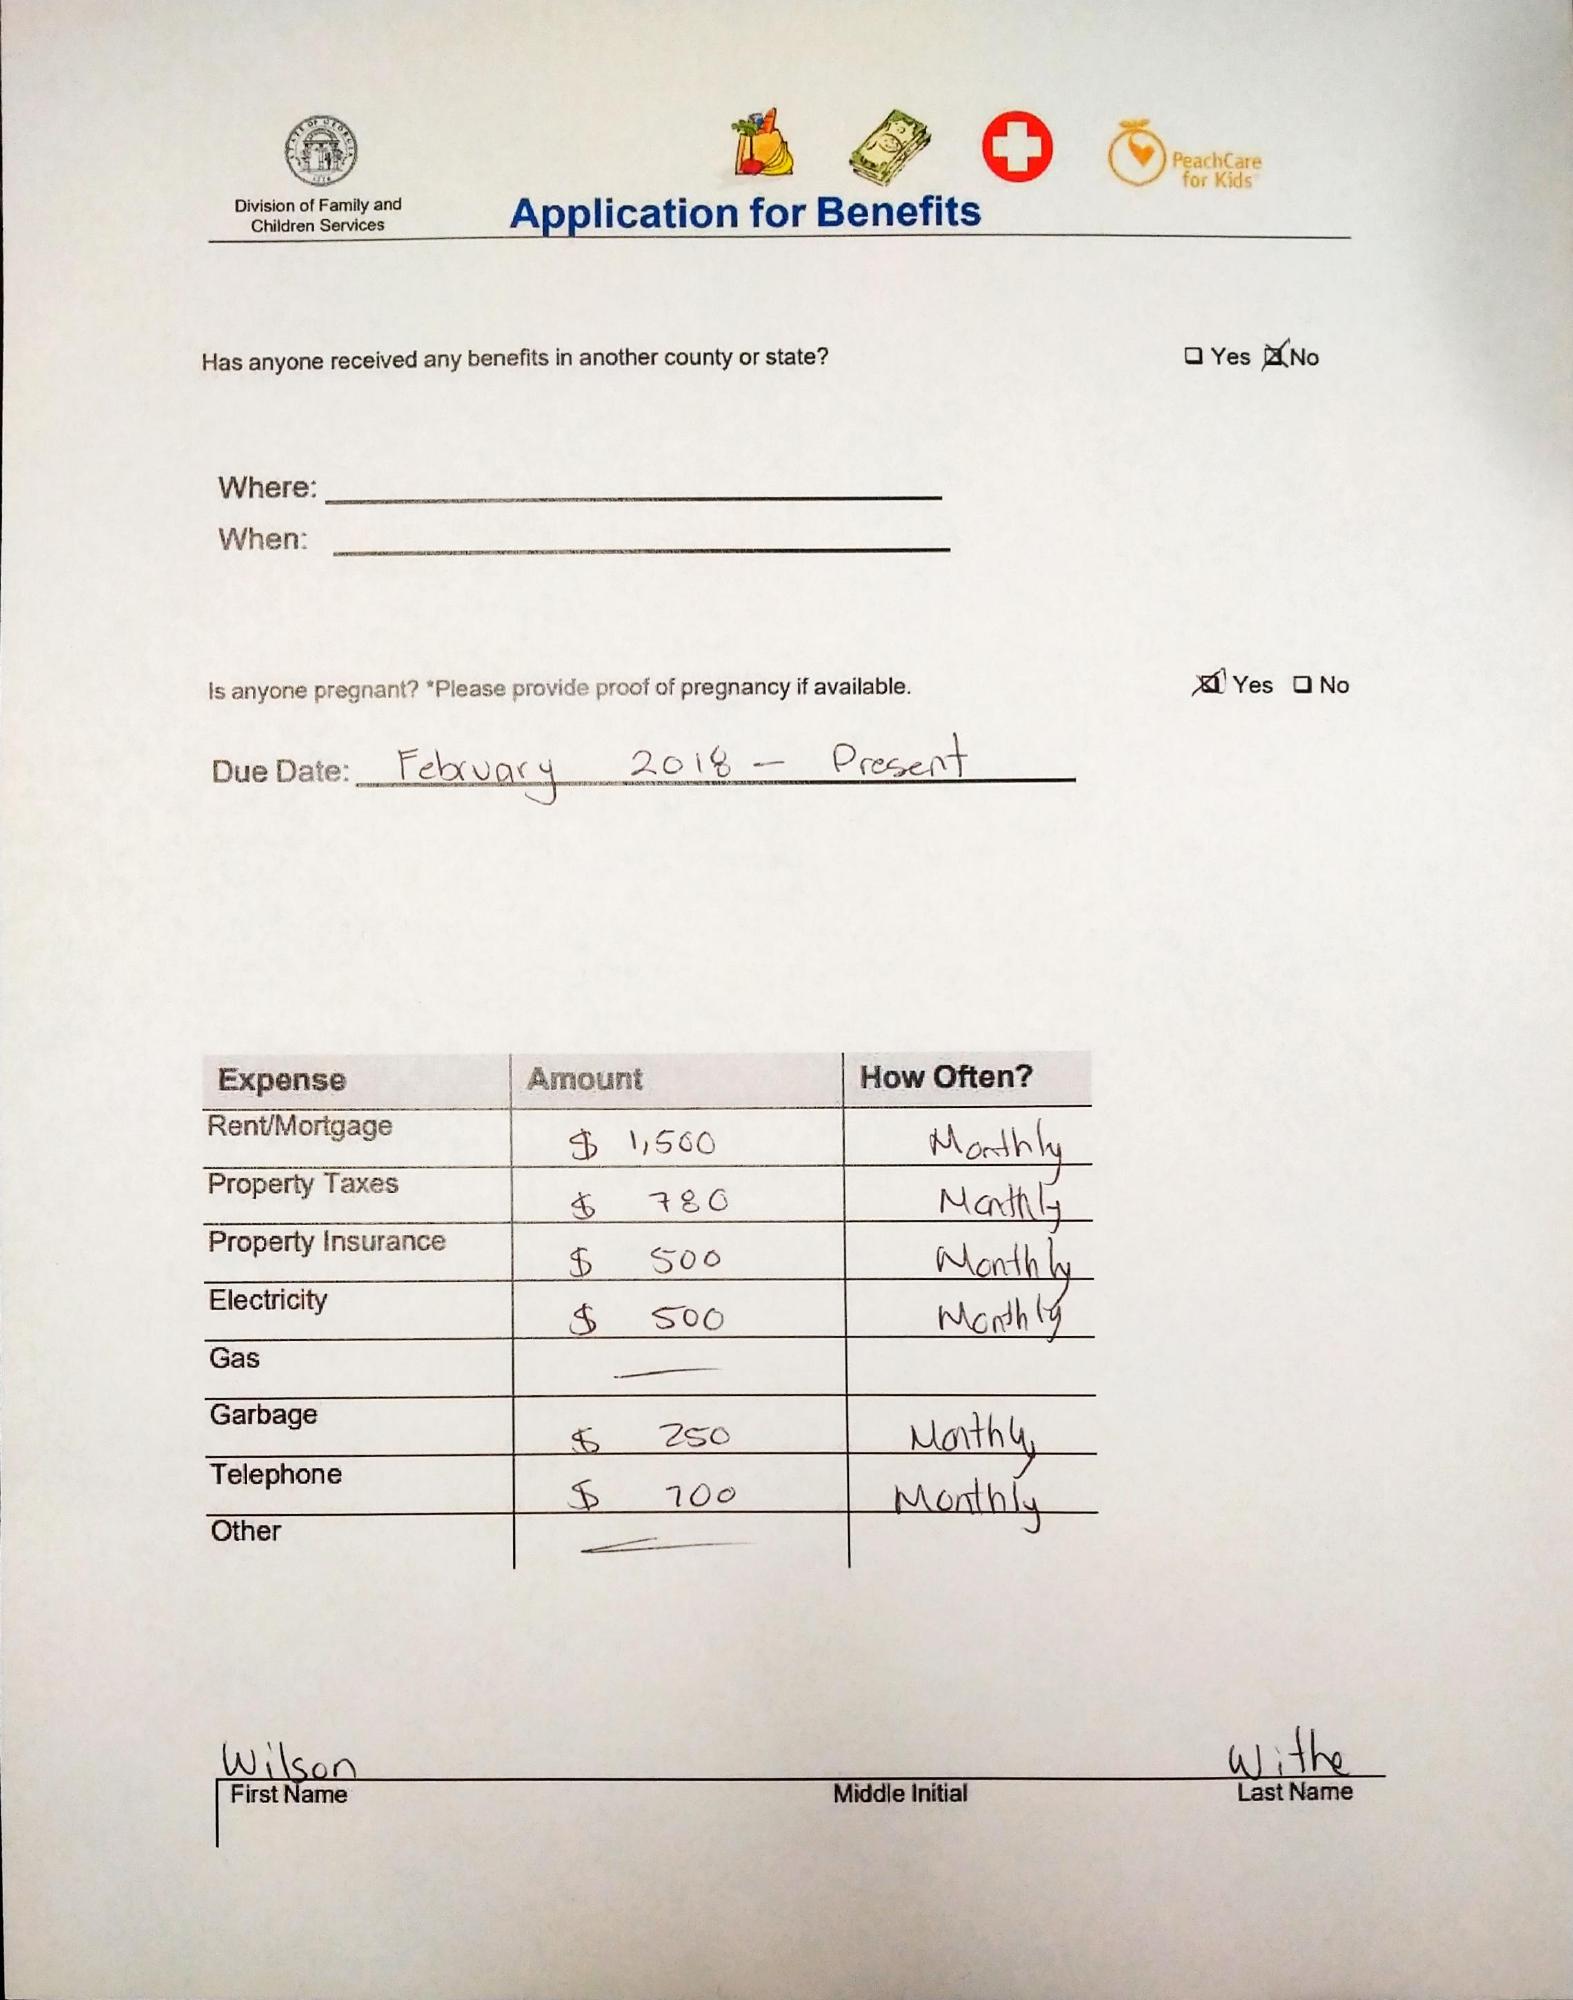 STATE OF GEORGIA
1776
PeachCare
for Kids
Division of Family and
Children Services
Application for Benefits
Has anyone received any benefits in another county or state? ☐ Yes ☒ No
Where:
When:
Is anyone pregnant? *Please provide proof of pregnancy if available. ☒ Yes ☐ No
Due Date: February 2018 - Present
Expense Amount How Often?
Rent/Mortgage $ 1,500 Monthly
Property Taxes $ 780 Monthly
Property Insurance $ 500 Monthly
Electricity $ 500 Monthly
Gas —
Garbage $ 250 Monthly
Telephone $ 700 Monthly
Other —
Wilson Withe
First Name Middle Initial Last Name